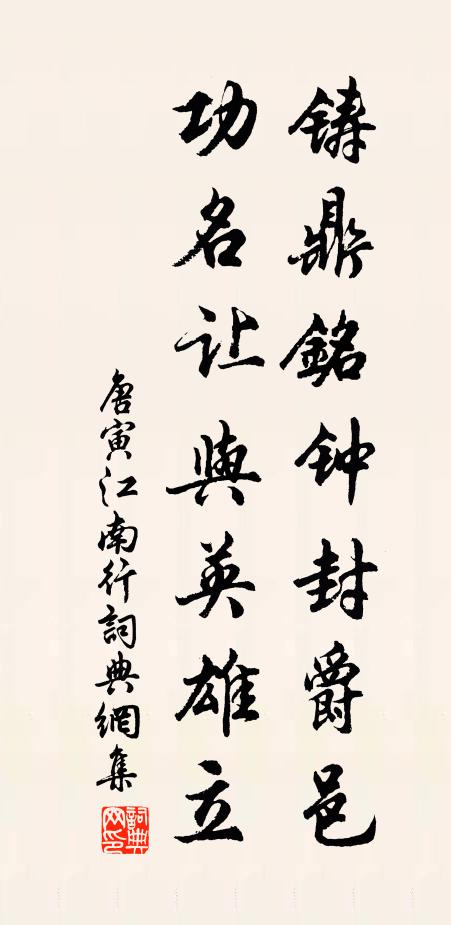 铸鼎銘钟封爵邑
功名让與英雄立
唐寅江南行詞典網集
詞典网印